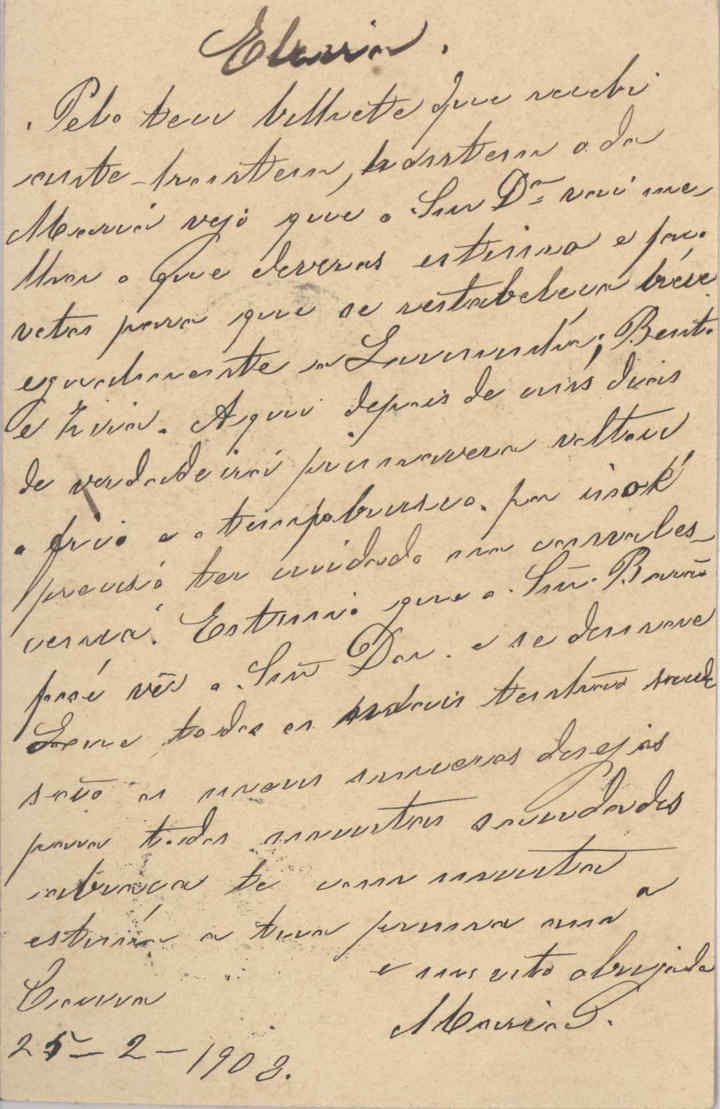 Elvira.
Pelo teu bilhete que recebi
ante-hontem, hontem o da
Maria vejo que o Snr Dr vai me-
lhor o que deveras estimo e faço
votos para que se restabeleça bréve
egualmente a Lavandra; Bento
e Livia. Aqui depois de uns dias
de verdadeira primavera voltou
o frio e o tempo burseo. por isso é
preciso ter cuidado na convales-
cença. Estimo que o Snr. Barão
possa vêr o Snr Dor. e se demore
Leve todos os mais tenhão saude
são os meus sinceros desejos
para todos muitas saudades
abraça te com muita
estima a tua prima am.a
e muito obrigada
Maria S.
25-2-1903.